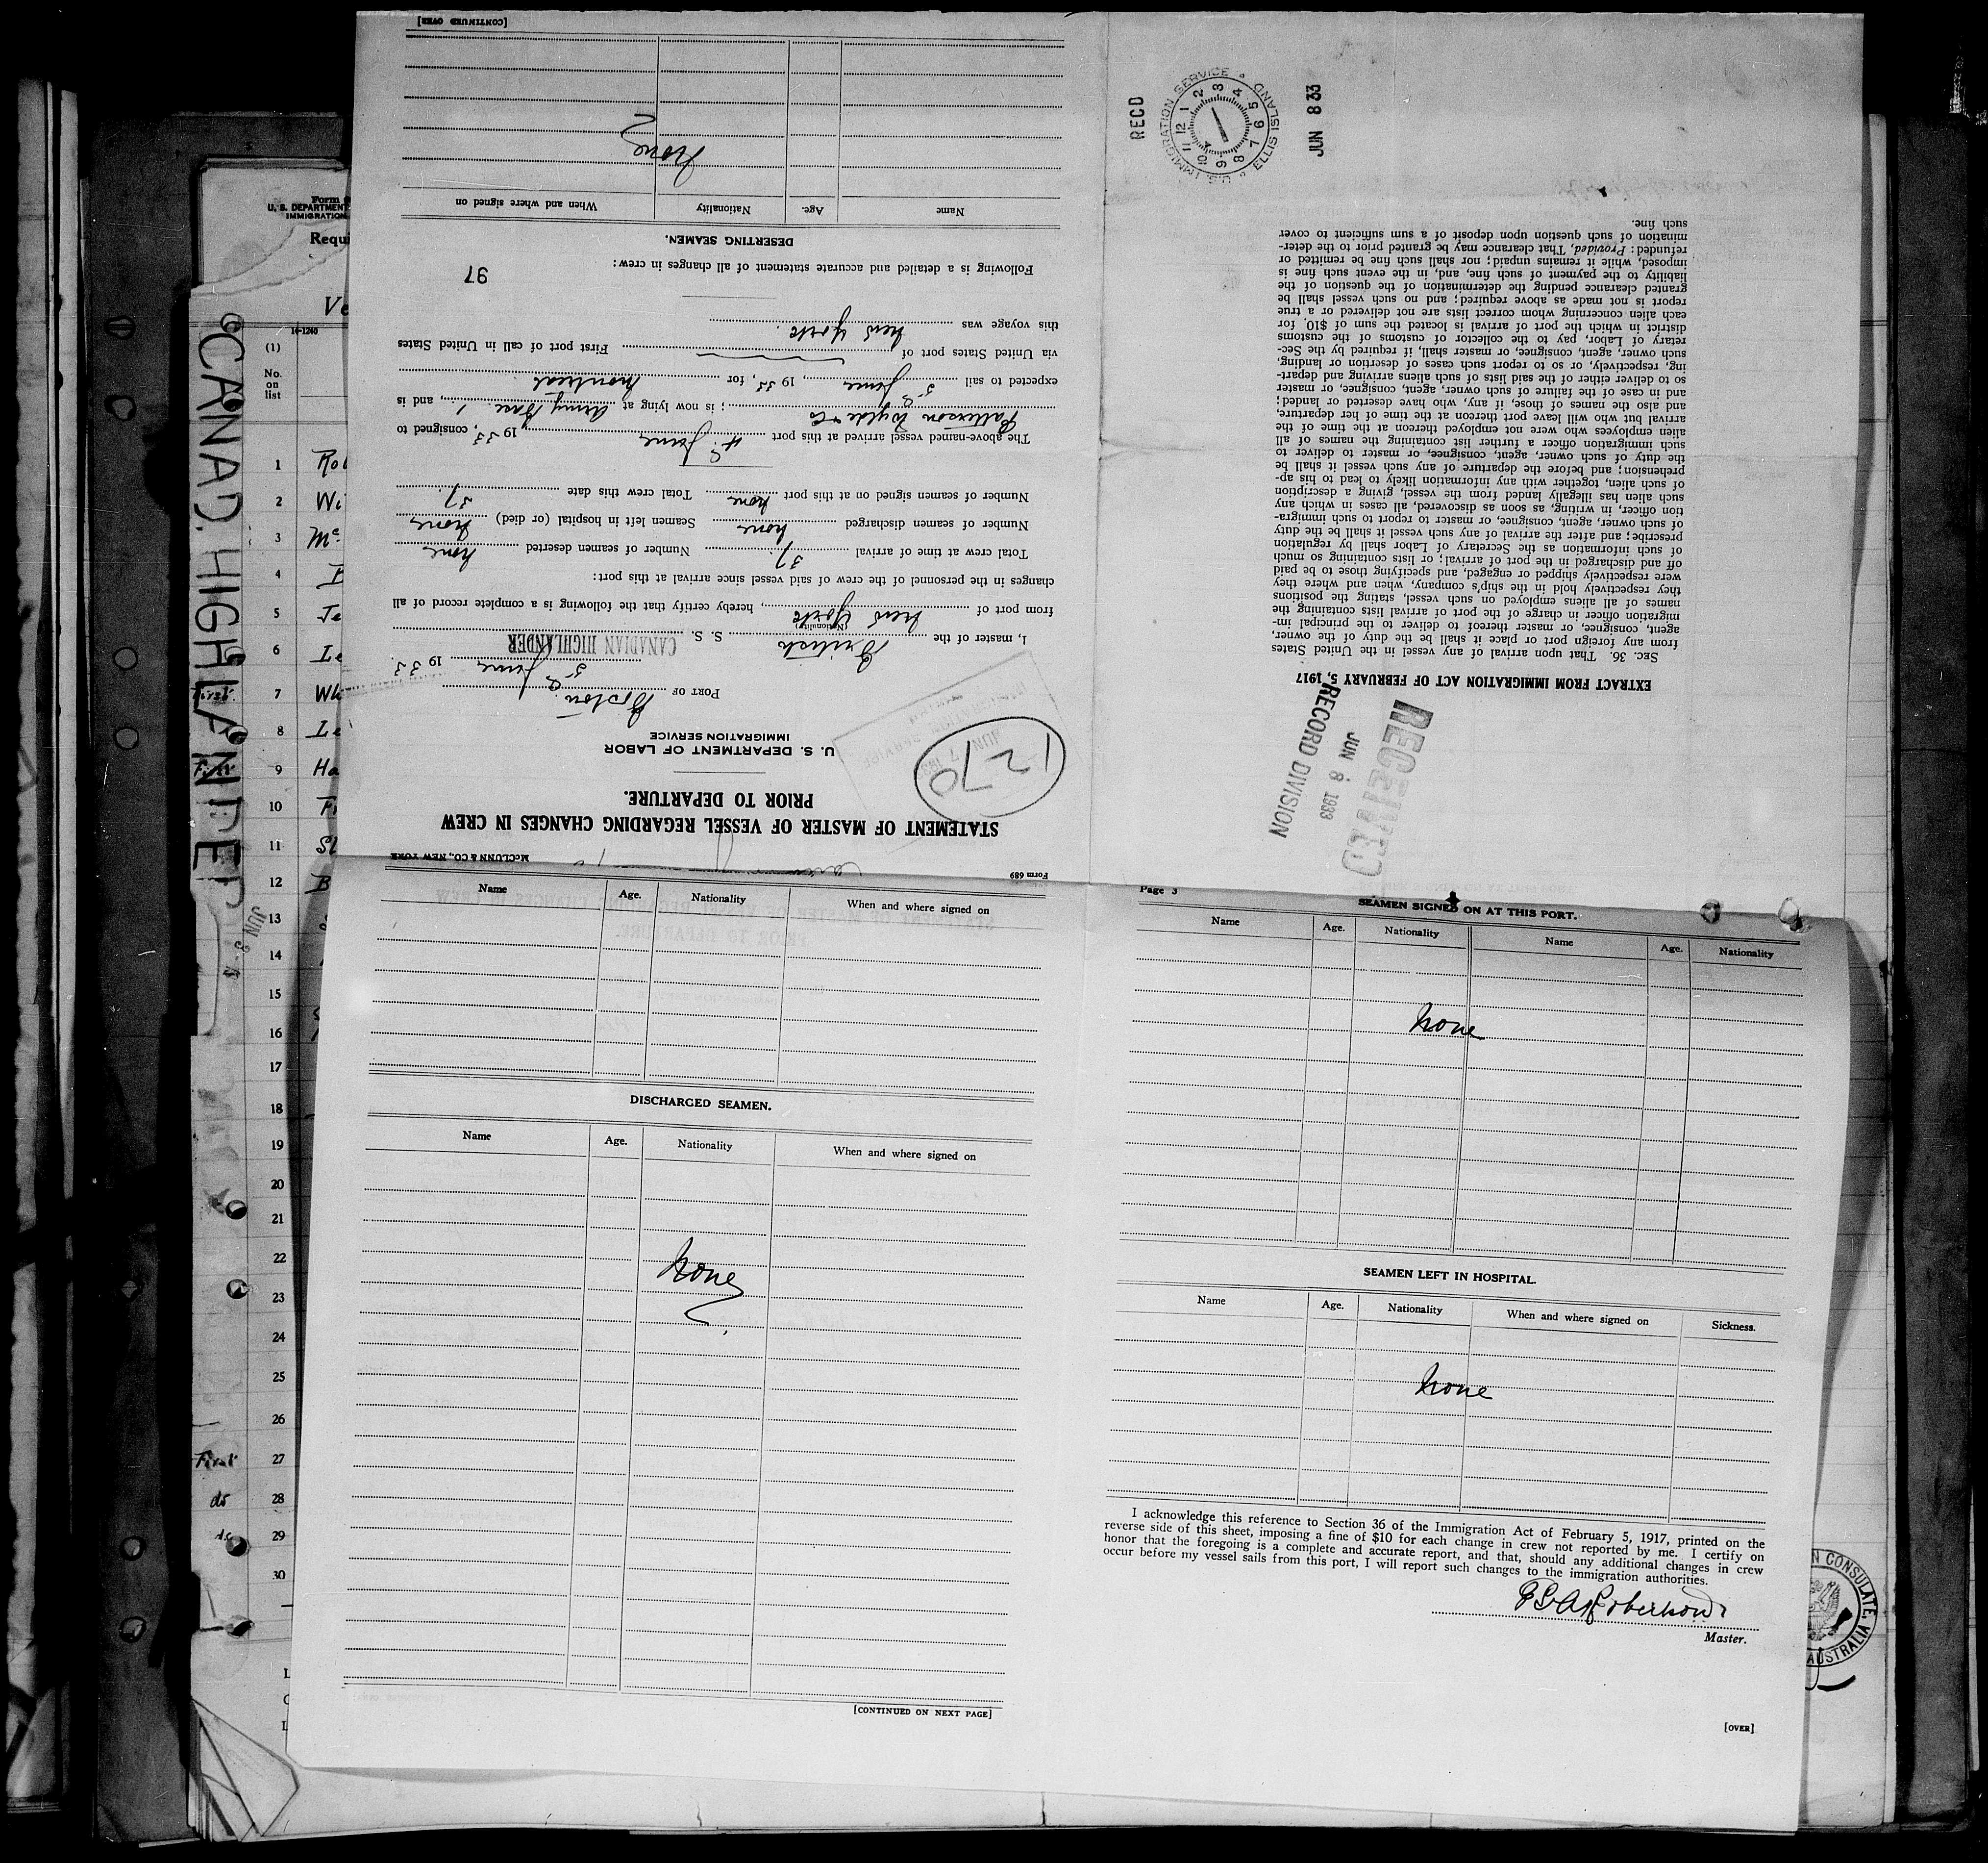 Form 689
McCLUNN & CO., NEW YORK
STATEMENT OF MASTER OF VESSEL REGARDING CHANGES IN CREW
PRIOR TO DEPARTURE.
1270
U. S. DEPARTMENT OF LABOR
IMMIGRATION SERVICE
PORT OF Boston
5th June 1933
I, master of the British S. S. CANADIAN HIGHLANDER
(Nationality)
from port of New York, hereby certify that the following is a complete record of all
changes in the personnel of the crew of said vessel since arrival at this port:
Total crew at time of arrival 37. Number of seamen deserted none
Number of seamen discharged none Seamen left in hospital (or died) none
Number of seamen signed on at this port none Total crew this date 37.
The above-named vessel arrived at this port 4th June 1933, consigned to
Patterson Wylde & Co; is now lying at Army Base 1, and is
expected to sail 5th June, 1933, for Montreal
via United States port of First port of call in United States
this voyage was New York.
Following is a detailed and accurate statement of all changes in crew:
97
DESERTING SEAMEN.
Name Age. Nationality When and where signed on
None
[CONTINUED OVER]
RECD
U.S. IMMIGRATION SERVICE ELLIS ISLAND
1 2 3 4 5 6 7 8 9 10 11 12
JUN 8 33
EXTRACT FROM IMMIGRATION ACT OF FEBRUARY 5, 1917
SEC. 36. That upon arrival of any vessel in the United States
from any foreign port or place it shall be the duty of the owner,
agent, consignee, or master thereof to deliver to the principal im-
migration officer in charge of the port of arrival lists containing the
names of all aliens employed on such vessel, stating the positions
they respectively hold in the ship's company, when and where they
were respectively shipped or engaged, and specifying those to be paid
off and discharged in the port of arrival; or lists containing so much
of such information as the Secretary of Labor shall by regulation
prescribe; and after the arrival of any such vessel it shall be the duty
of such owner, agent, consignee, or master to report to such immigra-
tion officer, in writing, as soon as discovered, all cases in which any
such alien has illegally landed from the vessel, giving a description
of such alien, together with any information likely to lead to his ap-
prehension; and before the departure of any such vessel it shall be
the duty of such owner, agent, consignee, or master to deliver to
such immigration officer a further list containing the names of all
alien employees who were not employed thereon at the time of the
arrival but who will leave port thereon at the time of her departure,
and also the names of those, if any, who have deserted or landed;
and in case of the failure of such owner, agent, consignee, or master
so to deliver either of the said lists of such aliens arriving and depart-
ing, respectively, or so to report such cases of desertion or landing,
such owner, agent, consignee, or master shall, if required by the Sec-
retary of Labor, pay to the collector of customs of the customs
district in which the port of arrival is located the sum of $10 for
each alien concerning whom correct lists are not delivered or a true
report is not made as above required; and no such vessel shall be
granted clearance pending the determination of the question of the
liability to the payment of such fine, and, in the event such fine is
imposed, while it remains unpaid; nor shall such fine be remitted or
refunded: Provided, That clearance may be granted prior to the deter-
mination of such question upon deposit of a sum sufficient to cover
such fine.
RECEIVED
JUN 8 1933
RECORD DIVISION
Name Age. Nationality When and where signed on
DISCHARGED SEAMEN.
Name Age. Nationality When and where signed on
None
[CONTINUED ON NEXT PAGE]
Page 3
SEAMEN SIGNED ON AT THIS PORT.
Name Age. Nationality Name Age. Nationality
None
SEAMEN LEFT IN HOSPITAL.
Name Age. Nationality When and where signed on Sickness.
None
I acknowledge this reference to Section 36 of the Immigration Act of February 5, 1917, printed on the
reverse side of this sheet, imposing a fine of $10 for each change in crew not reported by me. I certify on
honor that the foregoing is a complete and accurate report, and that, should any additional changes in crew
occur before my vessel sails from this port, I will report such changes to the immigration authorities.
Robertson
Master.
[OVER]
Form
U. S. DEPARTMENT
IMMIGRATION
Requi
Ve
14-1240
(1)
No.
on
list
1
2 Wi
3 Mc
4
5 Je
6 Le
First 7 Wh
8 Le
First 9 Ha
10
11
12 B
13
14
15
16
17
18
19
20
21
22
23
24
25
26
First 27
do 28
do 29
30
CANAD. HIGHLANDER
JUN 3
N CONSULATE,
AUSTRALIA